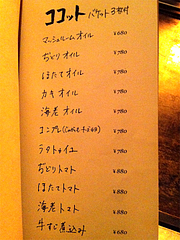 ココット バゲット3枚付
マッシュルームオイル ¥680
ぢどりオイル ¥780
ほたてオイル ¥780
カキオイル ¥780
海老オイル ¥780
コンプレ ¥780
ラタトゥイユ ¥780
ぢどりトマト ¥880
ほたてトマト ¥880
海老トマト ¥880
牛すじ煮込み ¥680